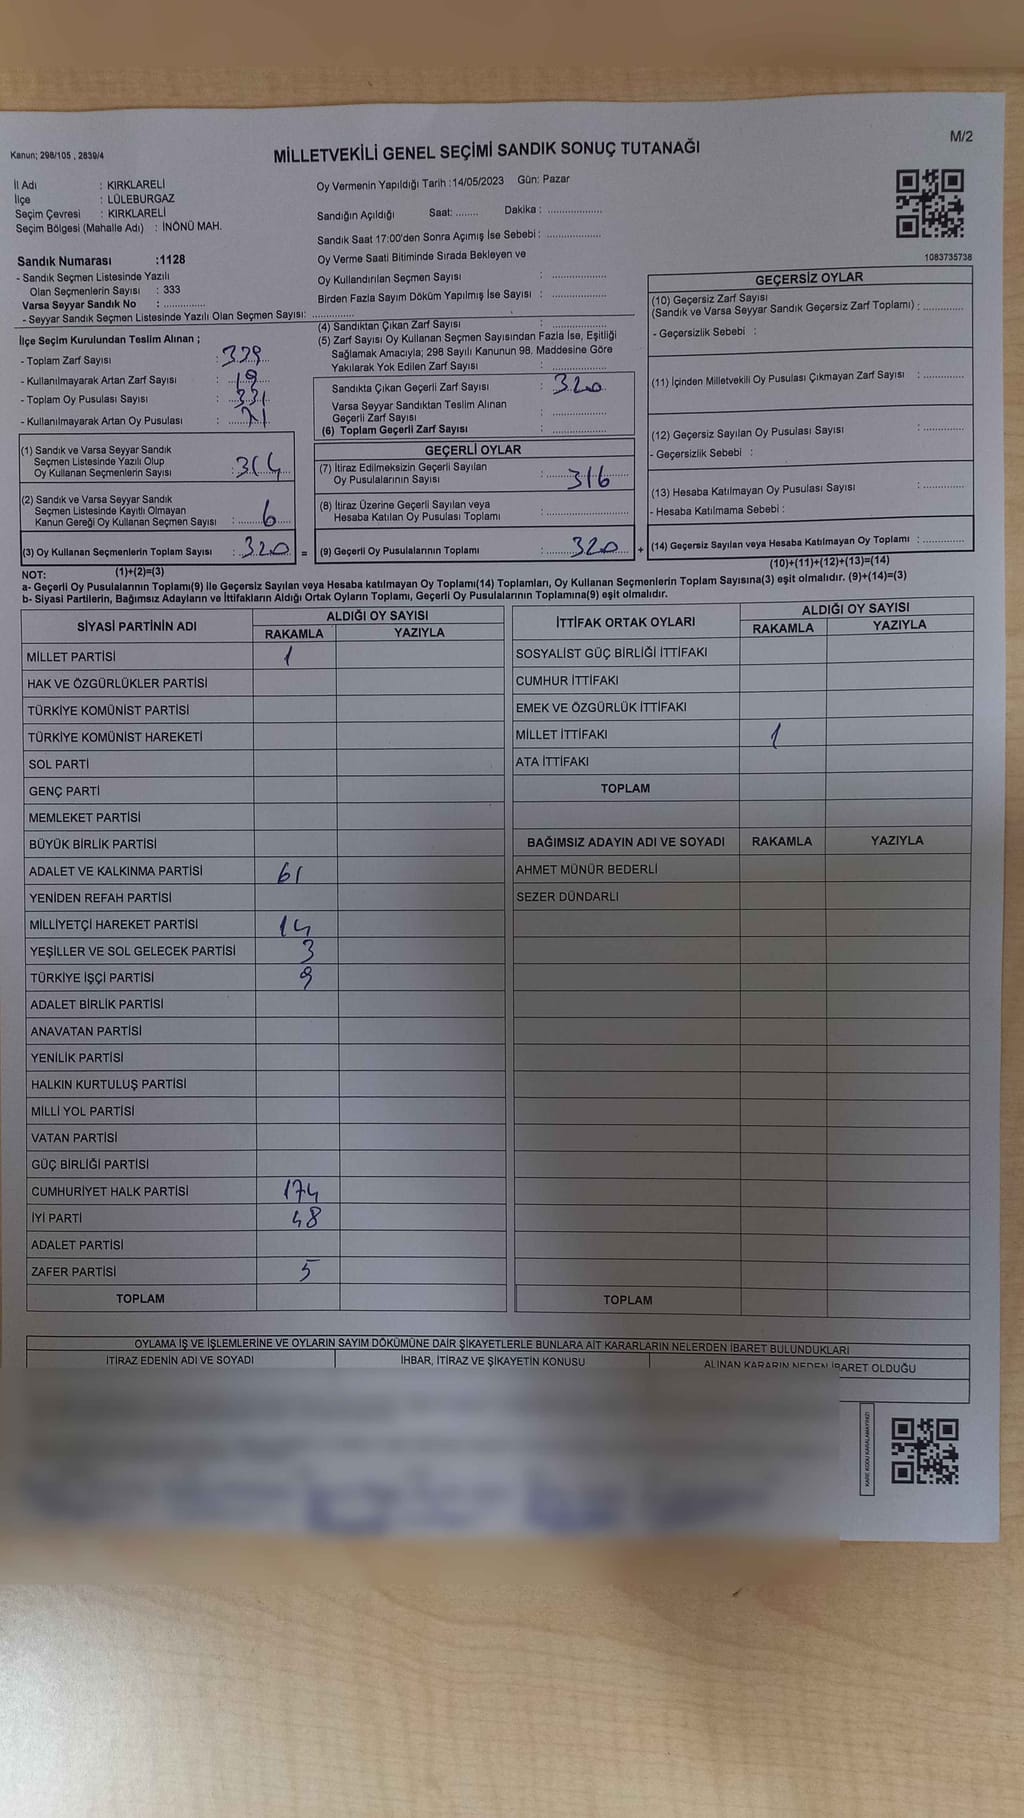 M/2
Kanun; 298/105 , 2839/4
MİLLETVEKİLİ GENEL SEÇİMİ SANDIK SONUÇ TUTANAĞI
İl Adı : KIRKLARELİ
İlçe : LÜLEBURGAZ
Seçim Çevresi : KIRKLARELİ
Seçim Bölgesi (Mahalle Adı) : İNÖNÜ MAH.
Oy Vermenin Yapıldığı Tarih :14/05/2023 Gün: Pazar
Sandığın Açıldığı Saat: ........ Dakika : ..................
Sandık Saat 17:00'den Sonra Açımış İse Sebebi : ..................
Oy Verme Saati Bitiminde Sırada Bekleyen ve
Oy Kullandırılan Seçmen Sayısı : ..................
Birden Fazla Sayım Döküm Yapılmış İse Sayısı : ..................
1083735738
Sandık Numarası :1128
- Sandık Seçmen Listesinde Yazılı
Olan Seçmenlerin Sayısı : 333
Varsa Seyyar Sandık No : ..............
- Seyyar Sandık Seçmen Listesinde Yazılı Olan Seçmen Sayısı: ..............
İlçe Seçim Kurulundan Teslim Alınan ;
- Toplam Zarf Sayısı : 339
- Kullanılmayarak Artan Zarf Sayısı : 19
- Toplam Oy Pusulası Sayısı : 331
- Kullanılmayarak Artan Oy Pusulası :
(1) Sandık ve Varsa Seyyar Sandık
Seçmen Listesinde Yazılı Olup
Oy Kullanan Seçmenlerin Sayısı : 314
(2) Sandık ve Varsa Seyyar Sandık
Seçmen Listesinde Kayıtlı Olmayan
Kanun Gereği Oy Kullanan Seçmen Sayısı : 6
(3) Oy Kullanan Seçmenlerin Toplam Sayısı : 320 =
(4) Sandıktan Çıkan Zarf Sayısı : ..................
(5) Zarf Sayısı Oy Kullanan Seçmen Sayısından Fazla İse, Eşitliği
Sağlamak Amacıyla; 298 Sayılı Kanunun 98. Maddesine Göre
Yakılarak Yok Edilen Zarf Sayısı : ..................
Sandıkta Çıkan Geçerli Zarf Sayısı : 320
Varsa Seyyar Sandıktan Teslim Alınan
Geçerli Zarf Sayısı : ..................
(6) Toplam Geçerli Zarf Sayısı : ..................
GEÇERLİ OYLAR
(7) İtiraz Edilmeksizin Geçerli Sayılan
Oy Pusulalarının Sayısı : 316
(8) İtiraz Üzerine Geçerli Sayılan veya
Hesaba Katılan Oy Pusulası Toplamı : ..................
(9) Geçerli Oy Pusulalarının Toplamı : 320 +
GEÇERSİZ OYLAR
(10) Geçersiz Zarf Sayısı
(Sandık ve Varsa Seyyar Sandık Geçersiz Zarf Toplamı) : ..............
- Geçersizlik Sebebi :
(11) İçinden Milletvekili Oy Pusulası Çıkmayan Zarf Sayısı : ..............
(12) Geçersiz Sayılan Oy Pusulası Sayısı : ..............
- Geçersizlik Sebebi :
(13) Hesaba Katılmayan Oy Pusulası Sayısı : ..............
- Hesaba Katılmama Sebebi :
(14) Geçersiz Sayılan veya Hesaba Katılmayan Oy Toplamı : ..............
NOT: (1)+(2)=(3)
(10)+(11)+(12)+(13)=(14)
a- Geçerli Oy Pusulalarının Toplamı(9) ile Geçersiz Sayılan veya Hesaba katılmayan Oy Toplamı(14) Toplamları, Oy Kullanan Seçmenlerin Toplam Sayısına(3) eşit olmalıdır. (9)+(14)=(3)
b- Siyasi Partilerin, Bağımsız Adayların ve İttifakların Aldığı Ortak Oyların Toplamı, Geçerli Oy Pusulalarının Toplamına(9) eşit olmalıdır.
SİYASİ PARTİNİN ADI ALDIĞI OY SAYISI
RAKAMLA YAZIYLA
MİLLET PARTİSİ 1
HAK VE ÖZGÜRLÜKLER PARTİSİ
TÜRKİYE KOMÜNİST PARTİSİ
TÜRKİYE KOMÜNİST HAREKETİ
SOL PARTİ
GENÇ PARTİ
MEMLEKET PARTİSİ
BÜYÜK BİRLİK PARTİSİ
ADALET VE KALKINMA PARTİSİ 61
YENİDEN REFAH PARTİSİ
MİLLİYETÇİ HAREKET PARTİSİ 14
YEŞİLLER VE SOL GELECEK PARTİSİ 3
TÜRKİYE İŞÇİ PARTİSİ 9
ADALET BİRLİK PARTİSİ
ANAVATAN PARTİSİ
YENİLİK PARTİSİ
HALKIN KURTULUŞ PARTİSİ
MİLLİ YOL PARTİSİ
VATAN PARTİSİ
GÜÇ BİRLİĞİ PARTİSİ
CUMHURİYET HALK PARTİSİ 174
İYİ PARTİ 48
ADALET PARTİSİ
ZAFER PARTİSİ 5
TOPLAM
İTTİFAK ORTAK OYLARI ALDIĞI OY SAYISI
RAKAMLA YAZIYLA
SOSYALİST GÜÇ BİRLİĞİ İTTİFAKI
CUMHUR İTTİFAKI
EMEK VE ÖZGÜRLÜK İTTİFAKI
MİLLET İTTİFAKI 1
ATA İTTİFAKI
TOPLAM
BAĞIMSIZ ADAYIN ADI VE SOYADI RAKAMLA YAZIYLA
AHMET MÜNÜR BEDERLİ
SEZER DÜNDARLI
TOPLAM
OYLAMA İŞ VE İŞLEMLERİNE VE OYLARIN SAYIM DÖKÜMÜNE DAİR ŞİKAYETLERLE BUNLARA AİT KARARLARIN NELERDEN İBARET BULUNDUKLARI
İTİRAZ EDENİN ADI VE SOYADI İHBAR, İTİRAZ VE ŞİKAYETİN KONUSU ALINAN KARARIN NEDEN İBARET OLDUĞU
KARE KODU KARALAMAYINIZ!